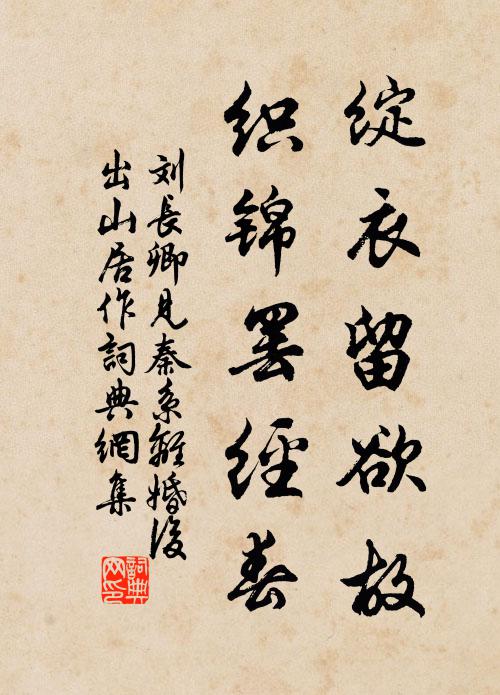 綻衣留欲故
织锦罢经春
刘長卿見秦系離婚後
出山居作詞典網集
詞典
网印